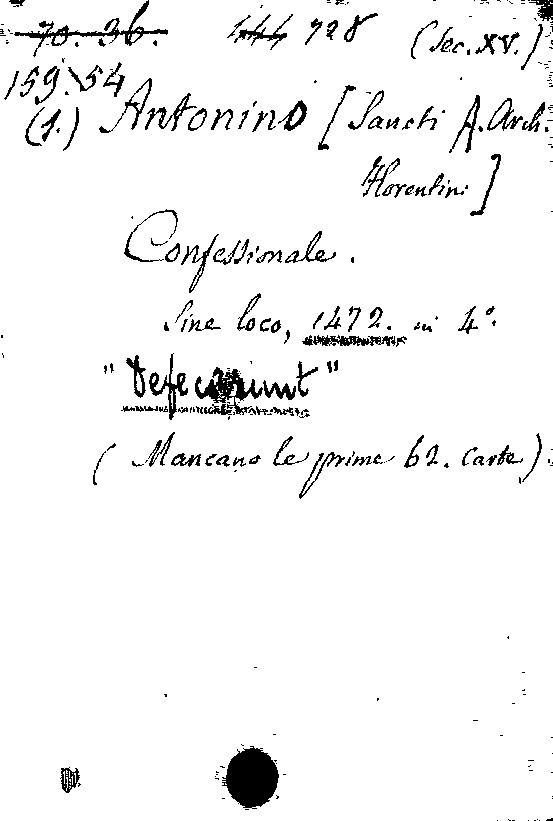 70. 36. 144 728 (Sec. XV.)
159.54
(1.) Antonino [Sancti A. Arch.
Florentini]
Confessionale.
Sine loco, 1472. in 4°.
"Defecerunt"
(Mancano le prime 62. carte)